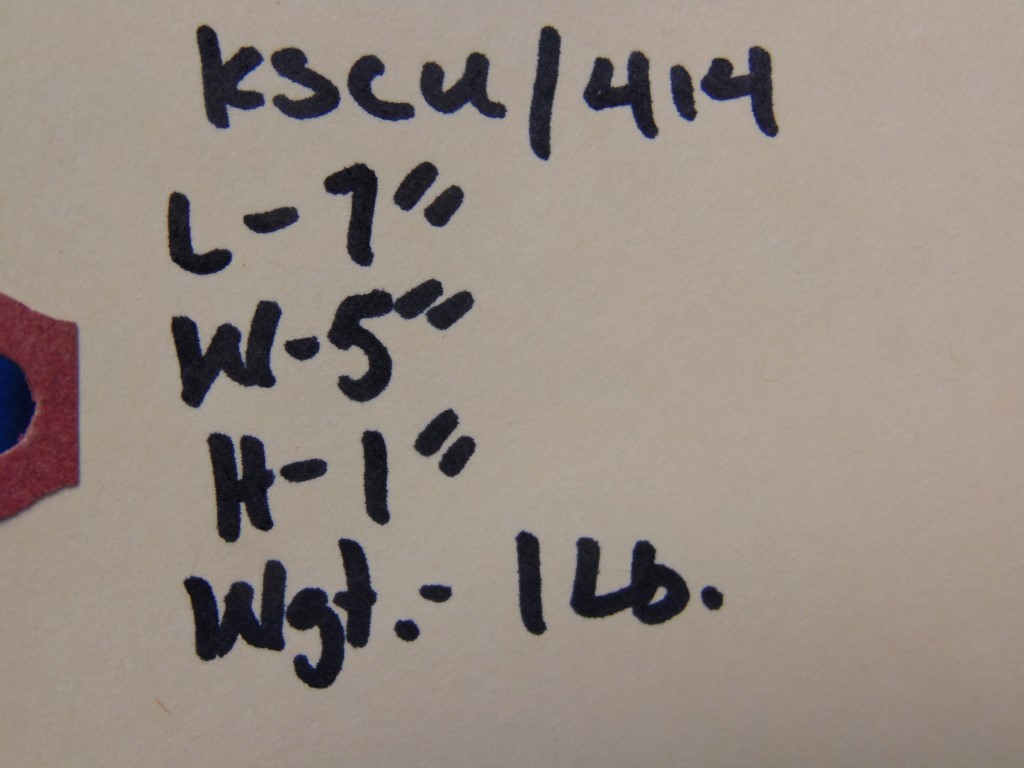 KSCU/414
L-7"
W-5"
H-1"
Wgt.- 1Lb.